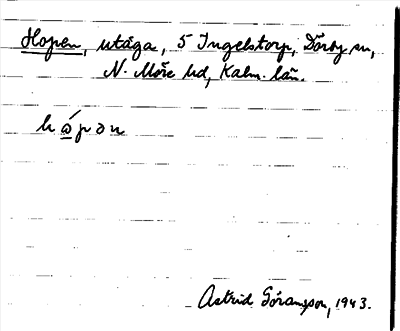 Hopen, utäga, 5 Ingelstorp, Dörby sn,
N. Möre hd, Kalm. län.
hópən
Astrid Göransson, 1943.